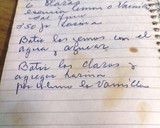 6 Claras
esencia Limon o Vainilla
Sal fina
250 gr harina
Batir las yemas con el
agua y azucar
Batir las claras y
agregar harina
por último la Vainilla